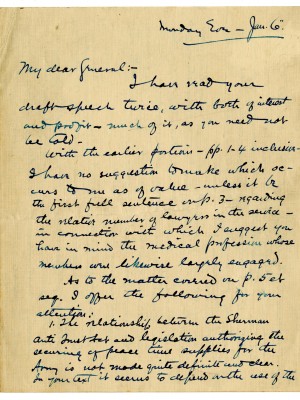 Monday Eve - Jan. 6.
My dear General:-
I have read your
draft speech twice, with both of interest
and profit - much of it, as you need not
be told -
With the earlier portions - pp. 1-4 inclusive -
I have no suggestion to make which oc-
curs to me as of value - unless it be
the first full sentence on p. 3 - regarding
the relative number of lawyers in the service -
in connection with which I suggest you
have in mind the medical profession whose
members were likewise largely engaged.
As to the matter covered on p. 5 et
seq. I offer the following for your
attention:
1. The relationship between the Sherman
Anti Trust Act and legislation authorizing the
securing of peace time supplies for the
Army is not made quite definite and clear.
In your text it seems to depend on the use of the